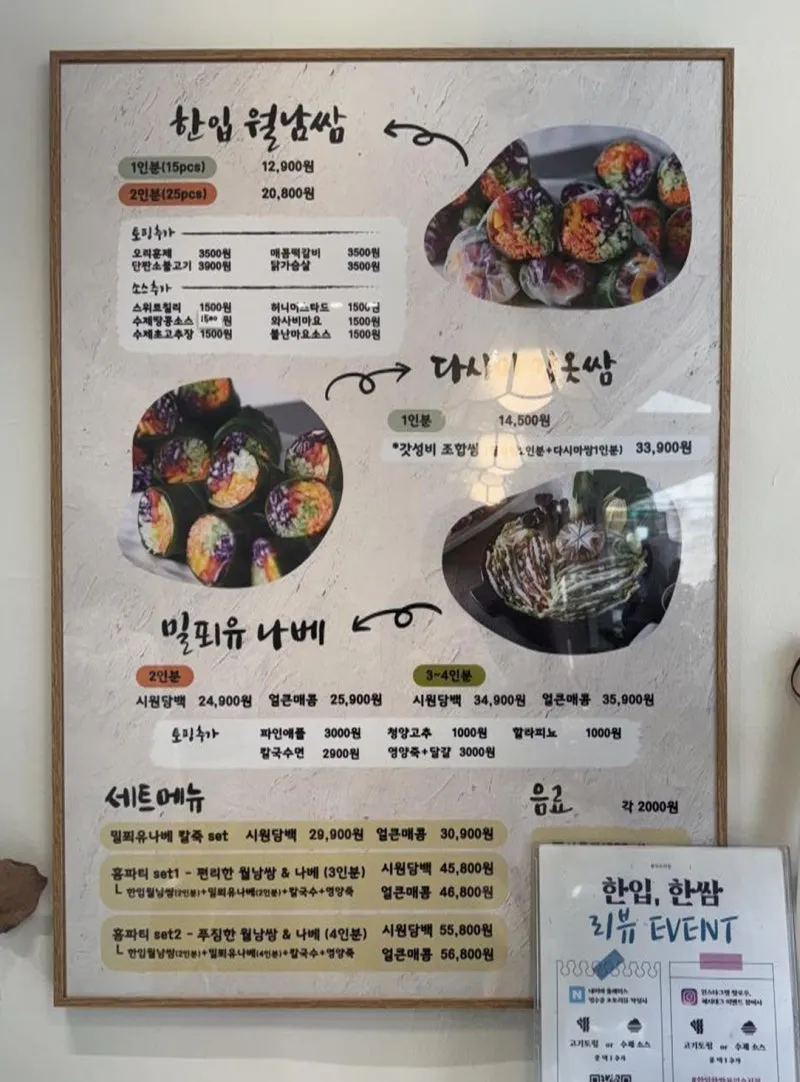 한입 월남쌈
1인분(15pcs) 12,900원
2인분(25pcs) 20,800원
토핑추가
오리훈제 3500원 매콤떡갈비 3500원
단짠소불고기 3900원 닭가슴살 3500원
소스추가
스위트칠리 1500원 허니머스타드 1500원
수제땅콩소스 1500원 와사비마요 1500원
수제초고추장 1500원 불난마요소스 1500원
1인분 14,500원
*갓성비 조합쌈 1인분+다시마쌈1인분) 33,900원
밀푀유 나베
2인분 3~4인분
시원담백 24,900원 얼큰매콤 25,900원 시원담백 34,900원 얼큰매콤 35,900원
토핑추가 파인애플 3000원 청양고추 1000원 할라피뇨 1000원
칼국수면 2900원 영양죽+달걀 3000원
세트메뉴 음료 각 2000원
밀푀유나베 칼죽 set 시원담백 29,900원 얼큰매콤 30,900원
홈파티 set1 - 편리한 월남쌈 & 나베 (3인분) 시원담백 45,800원
ㄴ 한입월남쌈(2인분)+밀푀유나베(2인분)+칼국수+영양죽 얼큰매콤 46,800원
홈파티 set2 - 푸짐한 월남쌈 & 나베 (4인분) 시원담백 55,800원
ㄴ 한입월남쌈(2인분)+밀푀유나베(4인분)+칼국수+영양죽 얼큰매콤 56,800원
한입, 한쌈
리뷰 EVENT
N 네이버 플레이스
영수증 포토리뷰 작성시
인스타그램 팔로우,
해시태그 이벤트 참여시
고기토핑 or 수제 소스
고기토핑 or 수제 소스
중 택 1 추가
중 택 1 추가